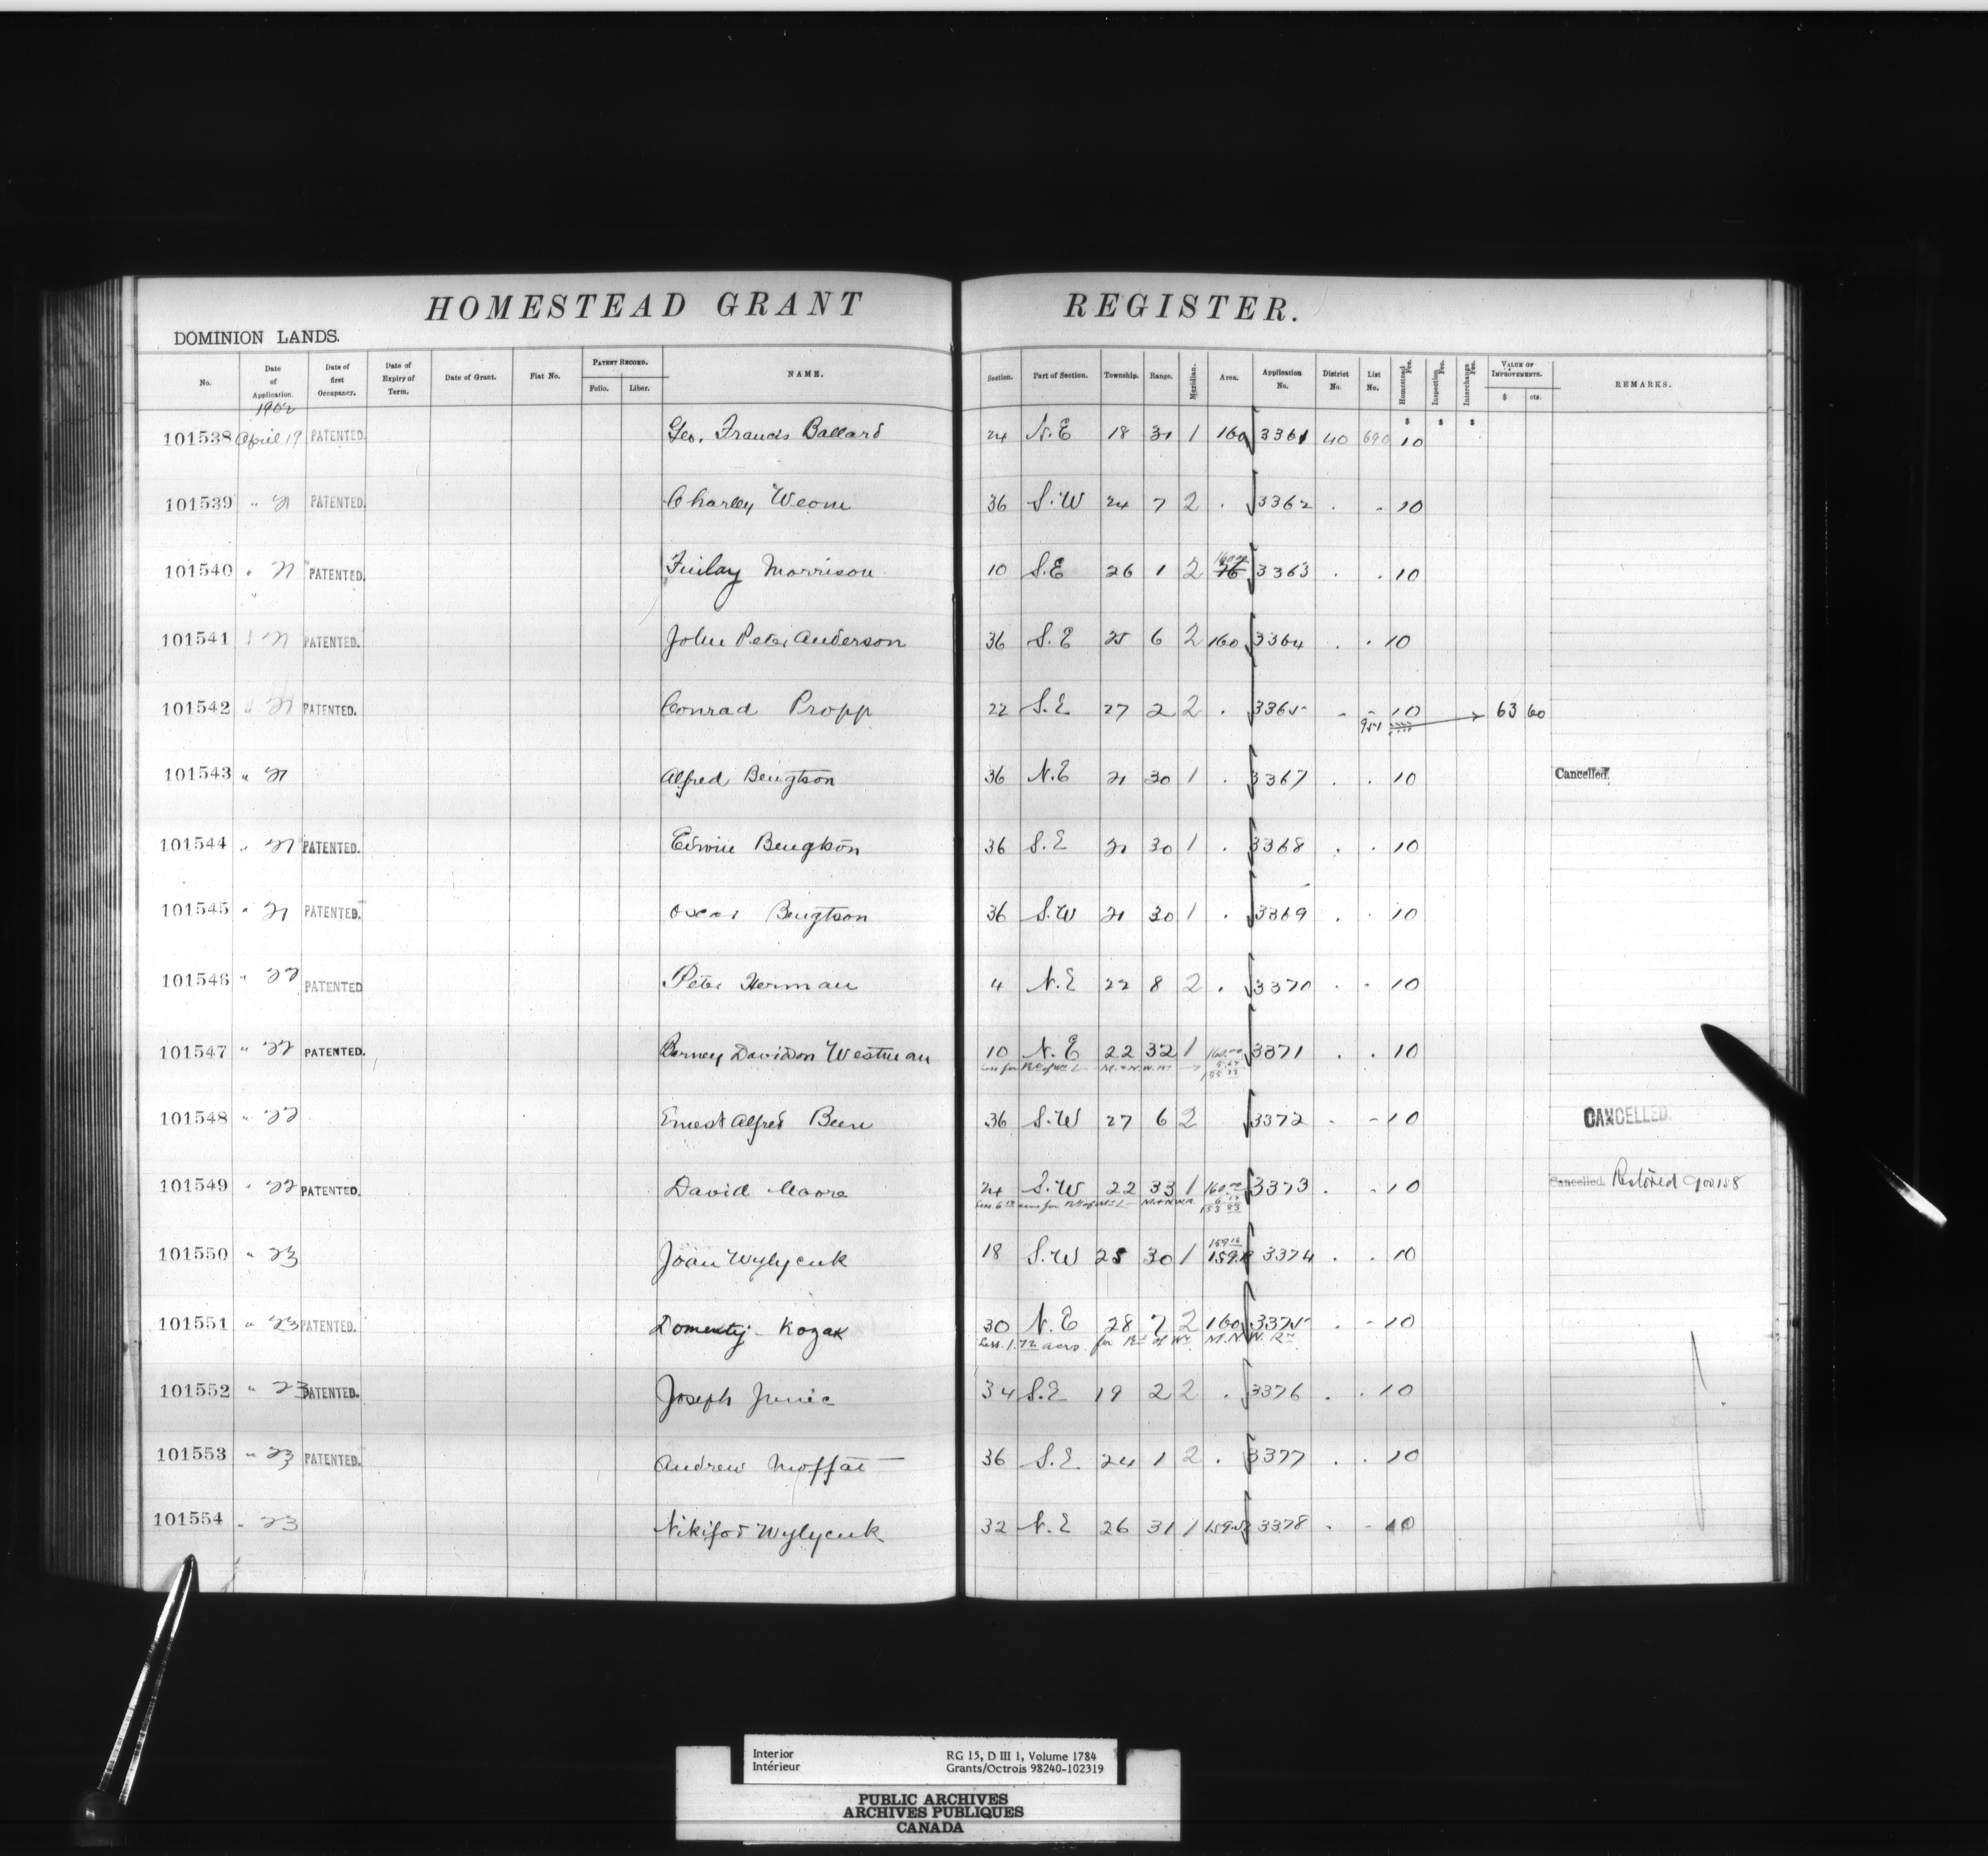 HOMESTEAD GRANT REGISTER.
DOMINION LANDS.
No. Date of Application. Date of first Occupancy. Date of Expiry of Term. Date of Grant. Fiat No. PATENT RECORD. Folio. Liber. NAME. Section. Part of Section. Township. Range. Meridian. Area. Application No. District No. List No. Homestead Fee. Inspection Fee. Interchange Fee. VALUE OF IMPROVEMENTS. $ cts. REMARKS.
1902
$ $ $
101538 April 19 PATENTED. Geo. Francis Ballard 24 N.E 18 31 1 160 3361 40 690 10
101539 " 21 PATENTED. Charley Weome 36 S.W 24 7 2 . 3362 . . 10
160.00
101540 " 21 PATENTED. Finlay Morrison 10 S.E 26 1 2 76 3363 . . 10
101541 " 21 PATENTED. John Peter Anderson 36 S.E 25 6 2 160 3364 . . 10
101542 " 21 PATENTED. Conrad Propp 22 S.E 27 2 2 . 3365 . . 10 63 60
951
101543 " 21 Alfred Bengtson 36 N.E 21 30 1 . 3367 . . 10 Cancelled.
101544 " 21 PATENTED. Edwin Bengtson 36 S.E 21 30 1 . 3368 . . 10
101545 " 21 PATENTED. Oscar Bengtson 36 S.W 21 30 1 . 3369 . . 10
101546 " 22 PATENTED Peter Herman 4 N.E 22 8 2 . 3370 . . 10
101547 " 22 PATENTED. Barney Davidson Westman 10 N.E 22 32 1 160.00 3371 . . 10
M. & N. W. Ry
101548 " 22 Ernest Alfred Been 36 S.W 27 6 2 3372 . - 10 CANCELLED.
101549 " 22 PATENTED. David Moore 24 S.W 22 33 1 160.00 3373 . - 10 Cancelled. Restored 900158
153 83
159.18
101550 " 23 Joan Wylycuk 18 S.W 25 30 1 159.18 3374 . . 10
101551 " 23 PATENTED. Domentij Kozak 30 N.E 28 7 2 160 3375 . - 10
Less 1.72 acres for Rt of Wy M.N.W. Ry.
101552 " 23 PATENTED. Joseph Junic 34 S.E 19 2 2 . 3376 . . 10
101553 " 23 PATENTED. Andrew Moffat 36 S.E. 24 1 2 . 3377 . . 10
101554 " 23 Nikifor Wylycuk 32 N.E 26 31 1 3378 . - 10
Interior RG 15, D III 1, Volume 1784
Intérieur Grants/Octrois 98240-102319
PUBLIC ARCHIVES
ARCHIVES PUBLIQUES
CANADA